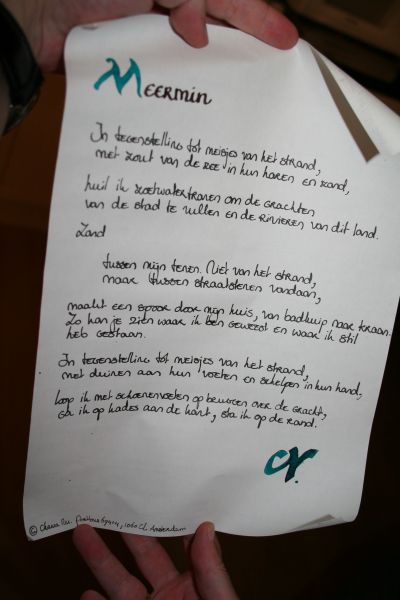 Meermin
In tegenstelling tot meisjes van het strand,
met zout van de zee in hun haren en zand,
huil ik zoetwatertranen om de grachten
van de stad te vullen en de rivieren van dit land.
Zand
tussen mijn tenen. Niet van het strand,
maar tussen straatstenen vandaan,
maakt een spoor door mijn huis, van badkuip naar kraan.
Zo kan je zien waar ik ben geweest en waar ik stil
heb gestaan.
In tegenstelling tot meisjes van het strand,
met duinen aan hun voeten en schelpen in hun hand,
loop ik met schoenenvoeten op bewogen over de gracht,
sta ik op kades aan de kant, sta ik op de rand.
©, Amsterdam